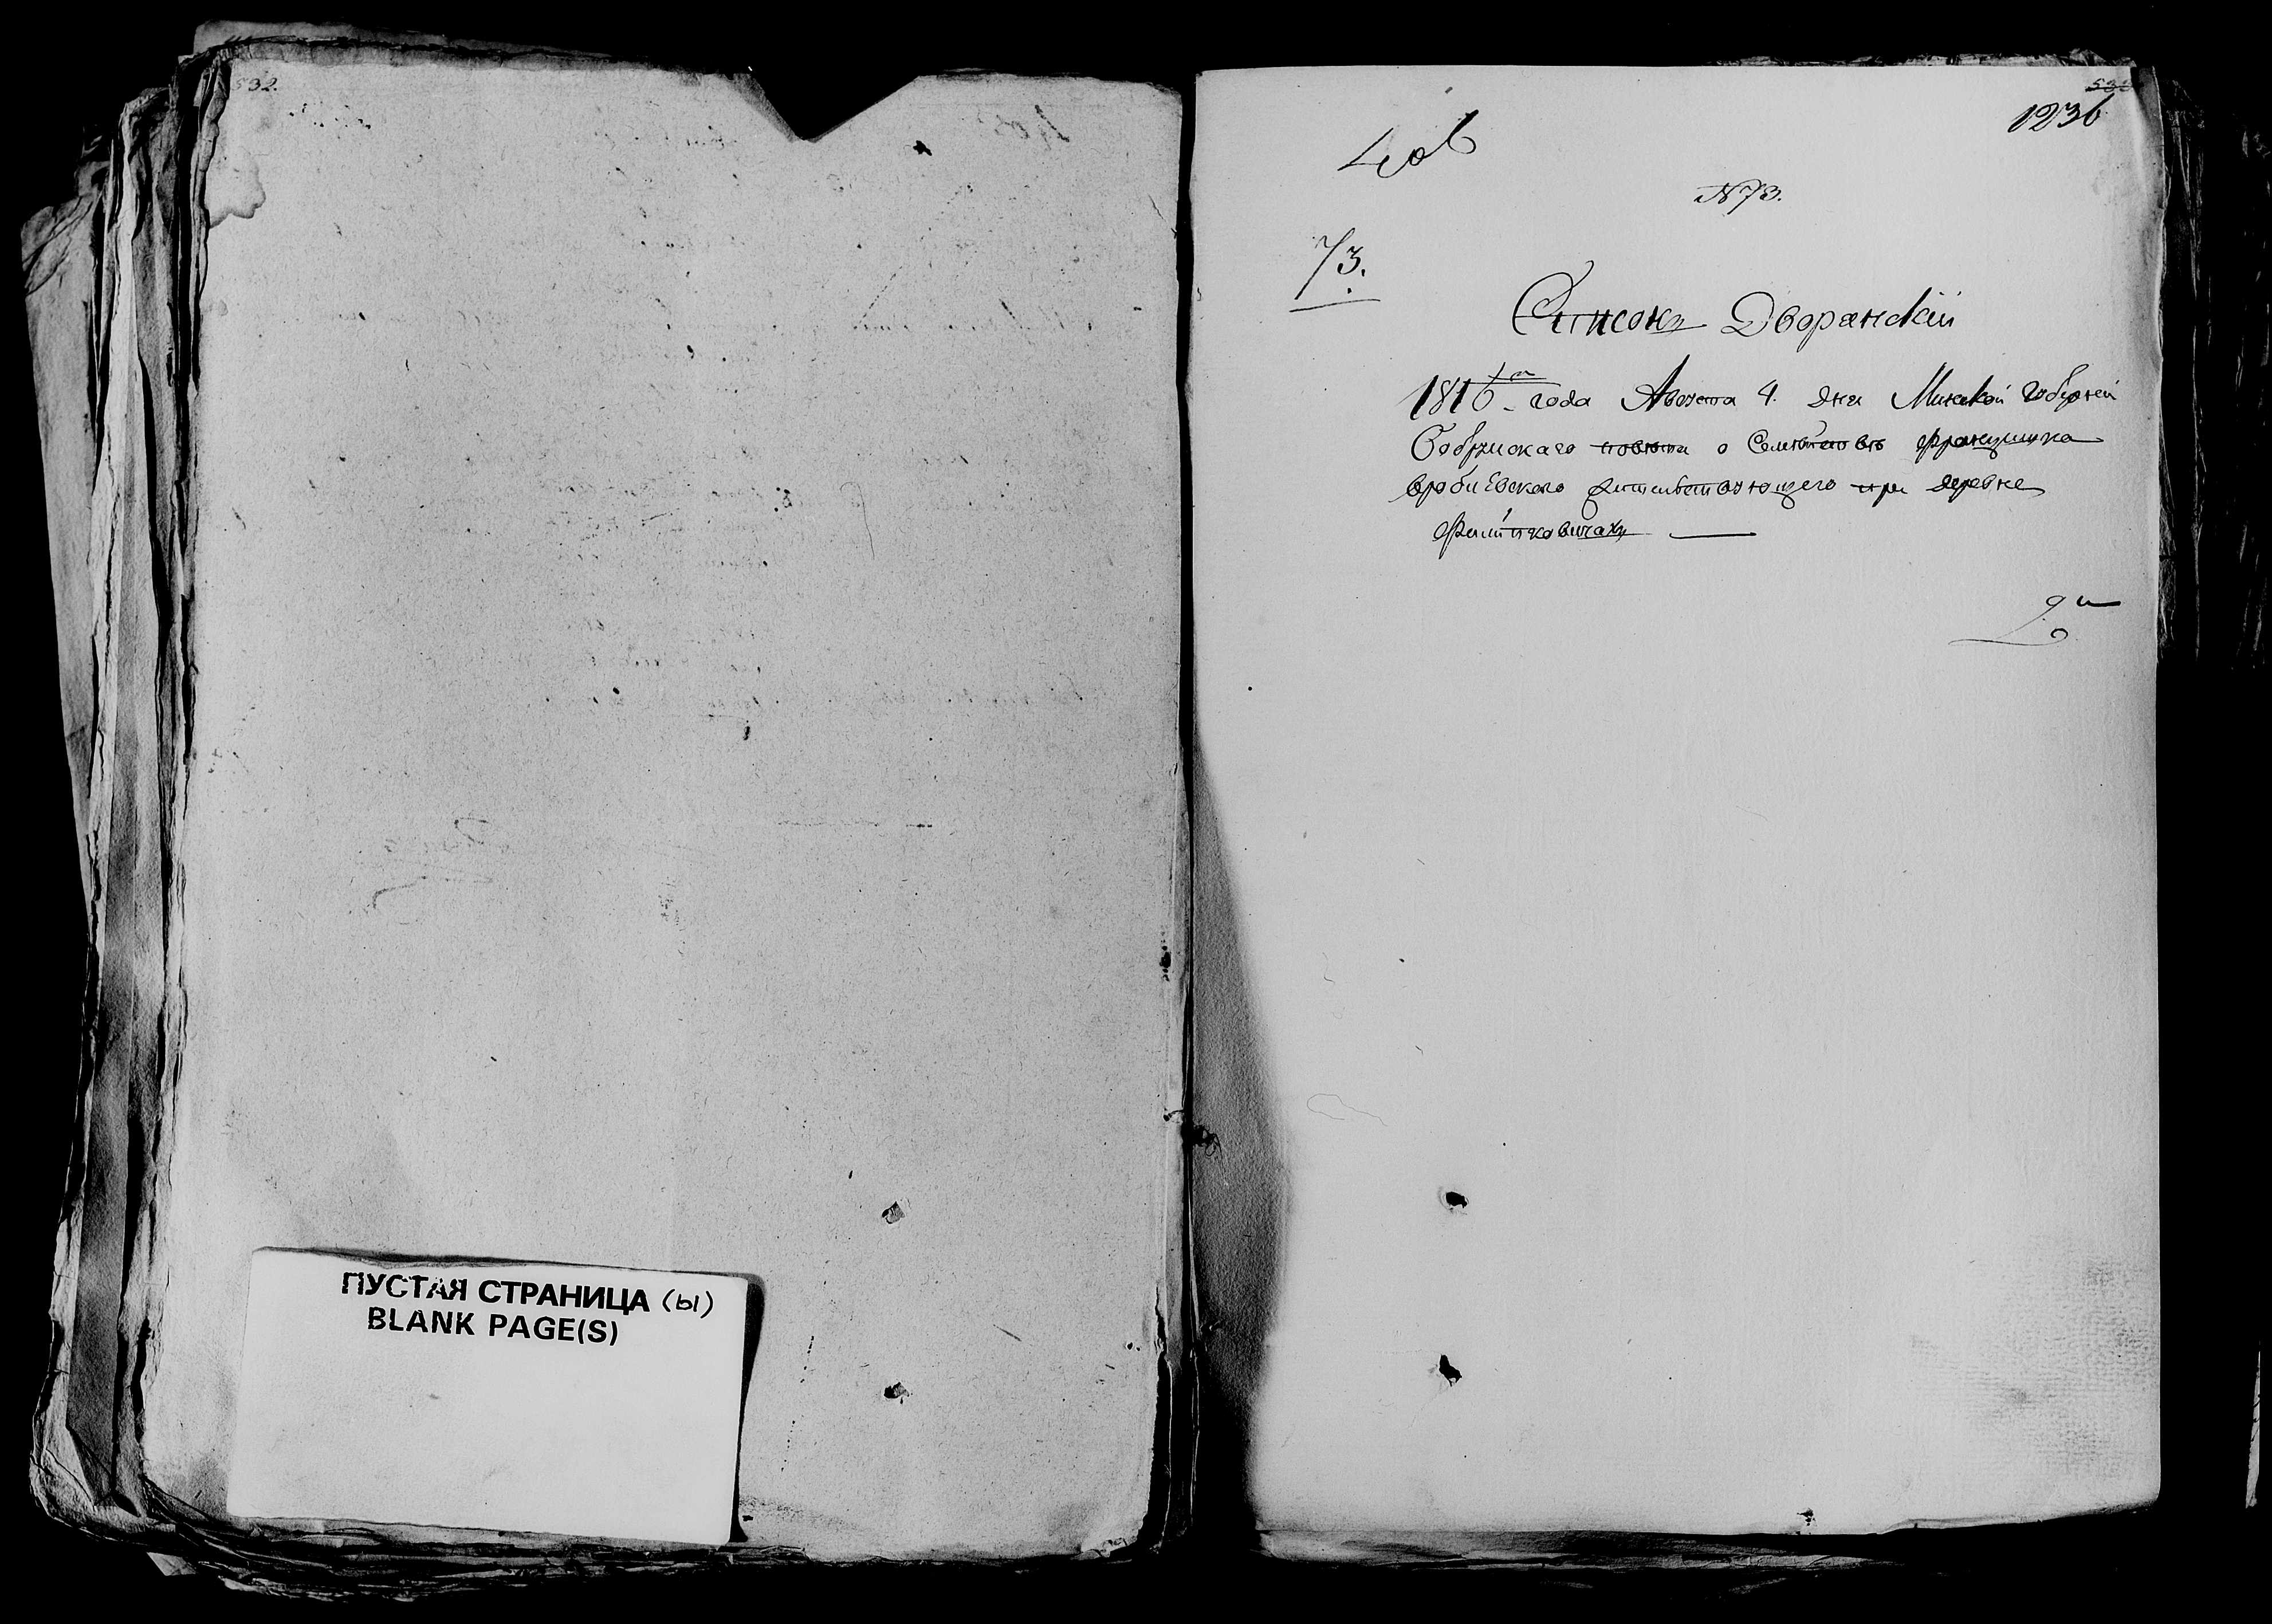 532.
ПУСТАЯ СТРАНИЦА (Ы)
BLANK PAGE(S)
1236
406
N 73.
73.
Списокъ Дворянскій
1816го года Августа 4. дня Минской Губерніи
Бобруйскаго повѣта о Семѣйствѣ Францишка
Вробліевского жительствующего при деревне